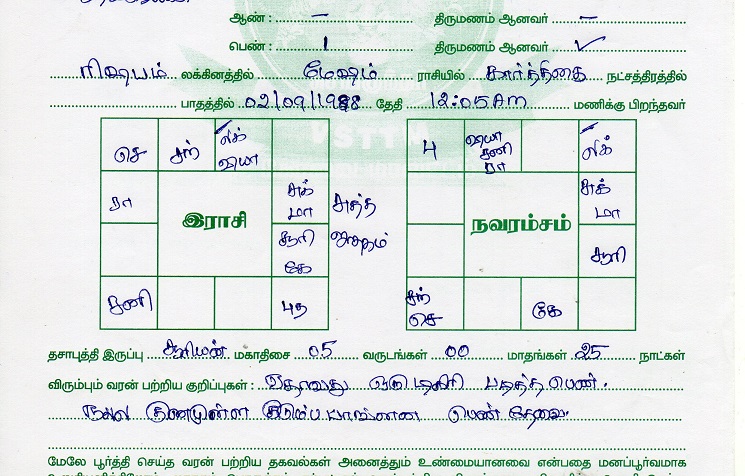 ஆண் : – திருமணம் ஆனவர் –
பெண் : 1 திருமணம் ஆனவர் ✓
ரிஷபம் லக்கினத்தில் மேஷம் ராசியில் கார்த்திகை நட்சத்திரத்தில்
பாதத்தில் 02/09/1988 தேதி 12:05 AM மணிக்கு பிறந்தவர்
செ சந் லக் வியா
4 வியா சனி ரா லக்
ரா இராசி சுக் மா
நவரம்சம் சுக் மா
சூரி கே
சூரி
சனி புத
சந் செ கே
தசாபுத்தி இருப்பு சூரியன் மகாதிசை 05 வருடங்கள் 00 மாதங்கள் 25 நாட்கள்
விரும்பும் வரன் பற்றிய குறிப்புகள் : ஏதாவது ஒரு டிகிரி படித்த பெண்.
நல்ல குணமுள்ள குடும்ப பாங்கான பெண் தேவை.
மேலே பூர்த்தி செய்த வரன் பற்றிய தகவல்கள் அனைத்தும் உண்மையானவை என்பதை மனப்பூர்வமாக